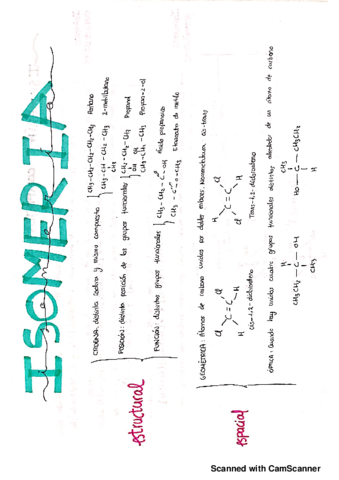 ISOMERIA
estructural
CADENA: distinto esqueleto y mismo compuesto
CH3-CH2-CH2-CH2-CH3 Pentano
CH3-CH-CH2-CH3 2-metilbutano
CH3
POSICIÓN: distinta posición de los grupos funcionales
CH2-CH2-CH3 Propanol
OH
OH
CH3-CH-CH3 Propan-2-ol
FUNCIÓN: distintos grupos funcionales
CH3-CH2-C-OH ácido propanoico
O
CH3-C-O-CH3 Etanoato de metilo
espacial
GEOMÉTRICA: átomos de carbono unidos por doble enlaces. Nomenclatura: cis-trans
Cl Cl
C=C
H H
cis-1,2-dicloroeteno
H Cl
C=C
Cl H
Trans-1,2-dicloroeteno
ÓPTICA: Cuando hay unidos cuatro grupos funcionales distintos alrededor de un átomo de carbono
H
CH3CH2-C-OH
CH3
CH3
HO-C-CH2CH3
H
Scanned with CamScanner